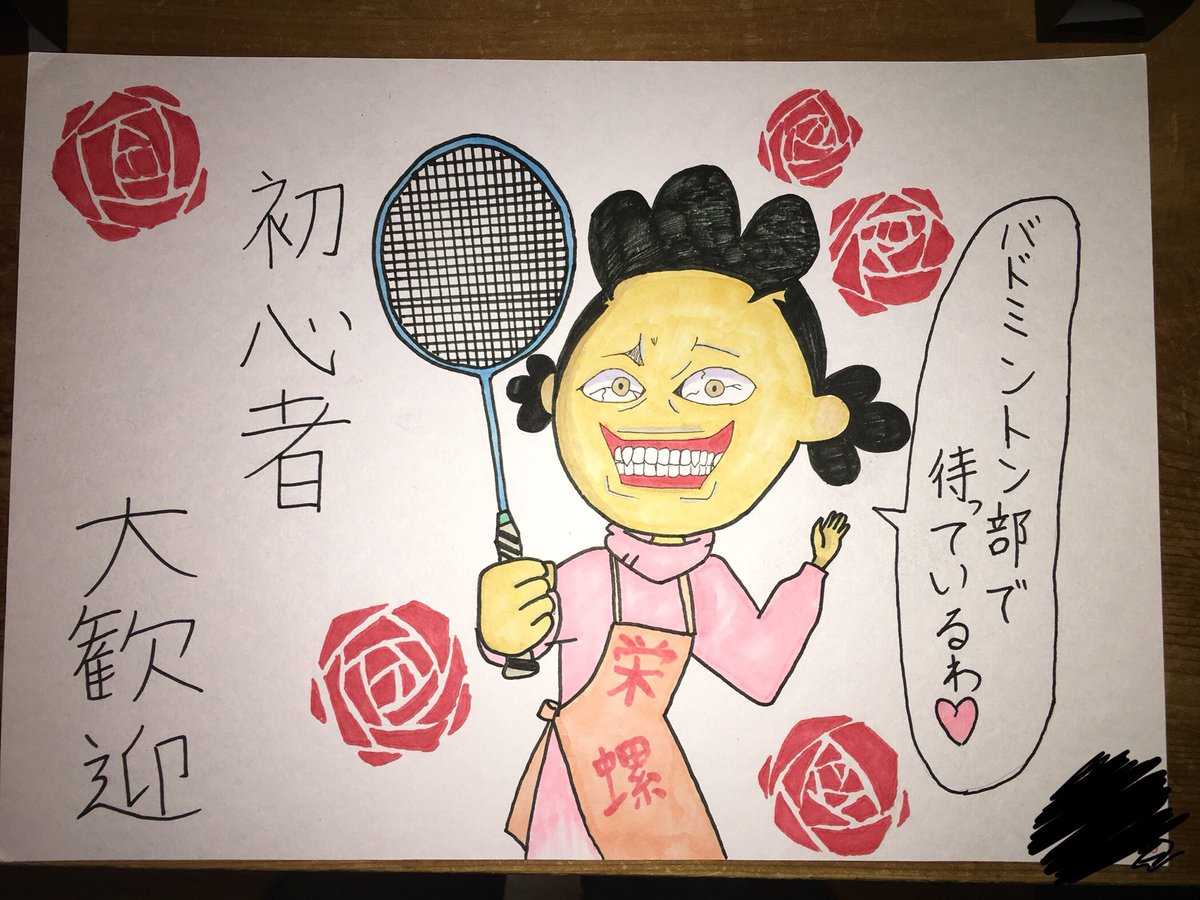 バドミントン部で
待っているわ
栄螺
初心者
大歓迎